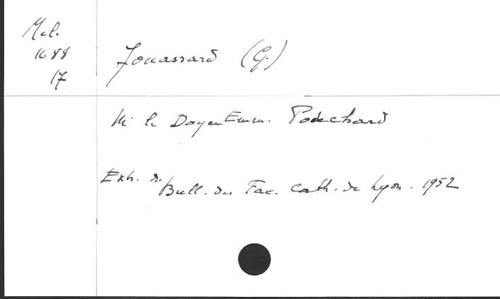 Mel.
1688
17
Jouassard (G.)
M. le Doyen Emm. Podechard
Extr. du
Bull. des Fac. Cath. de Lyon. 1952